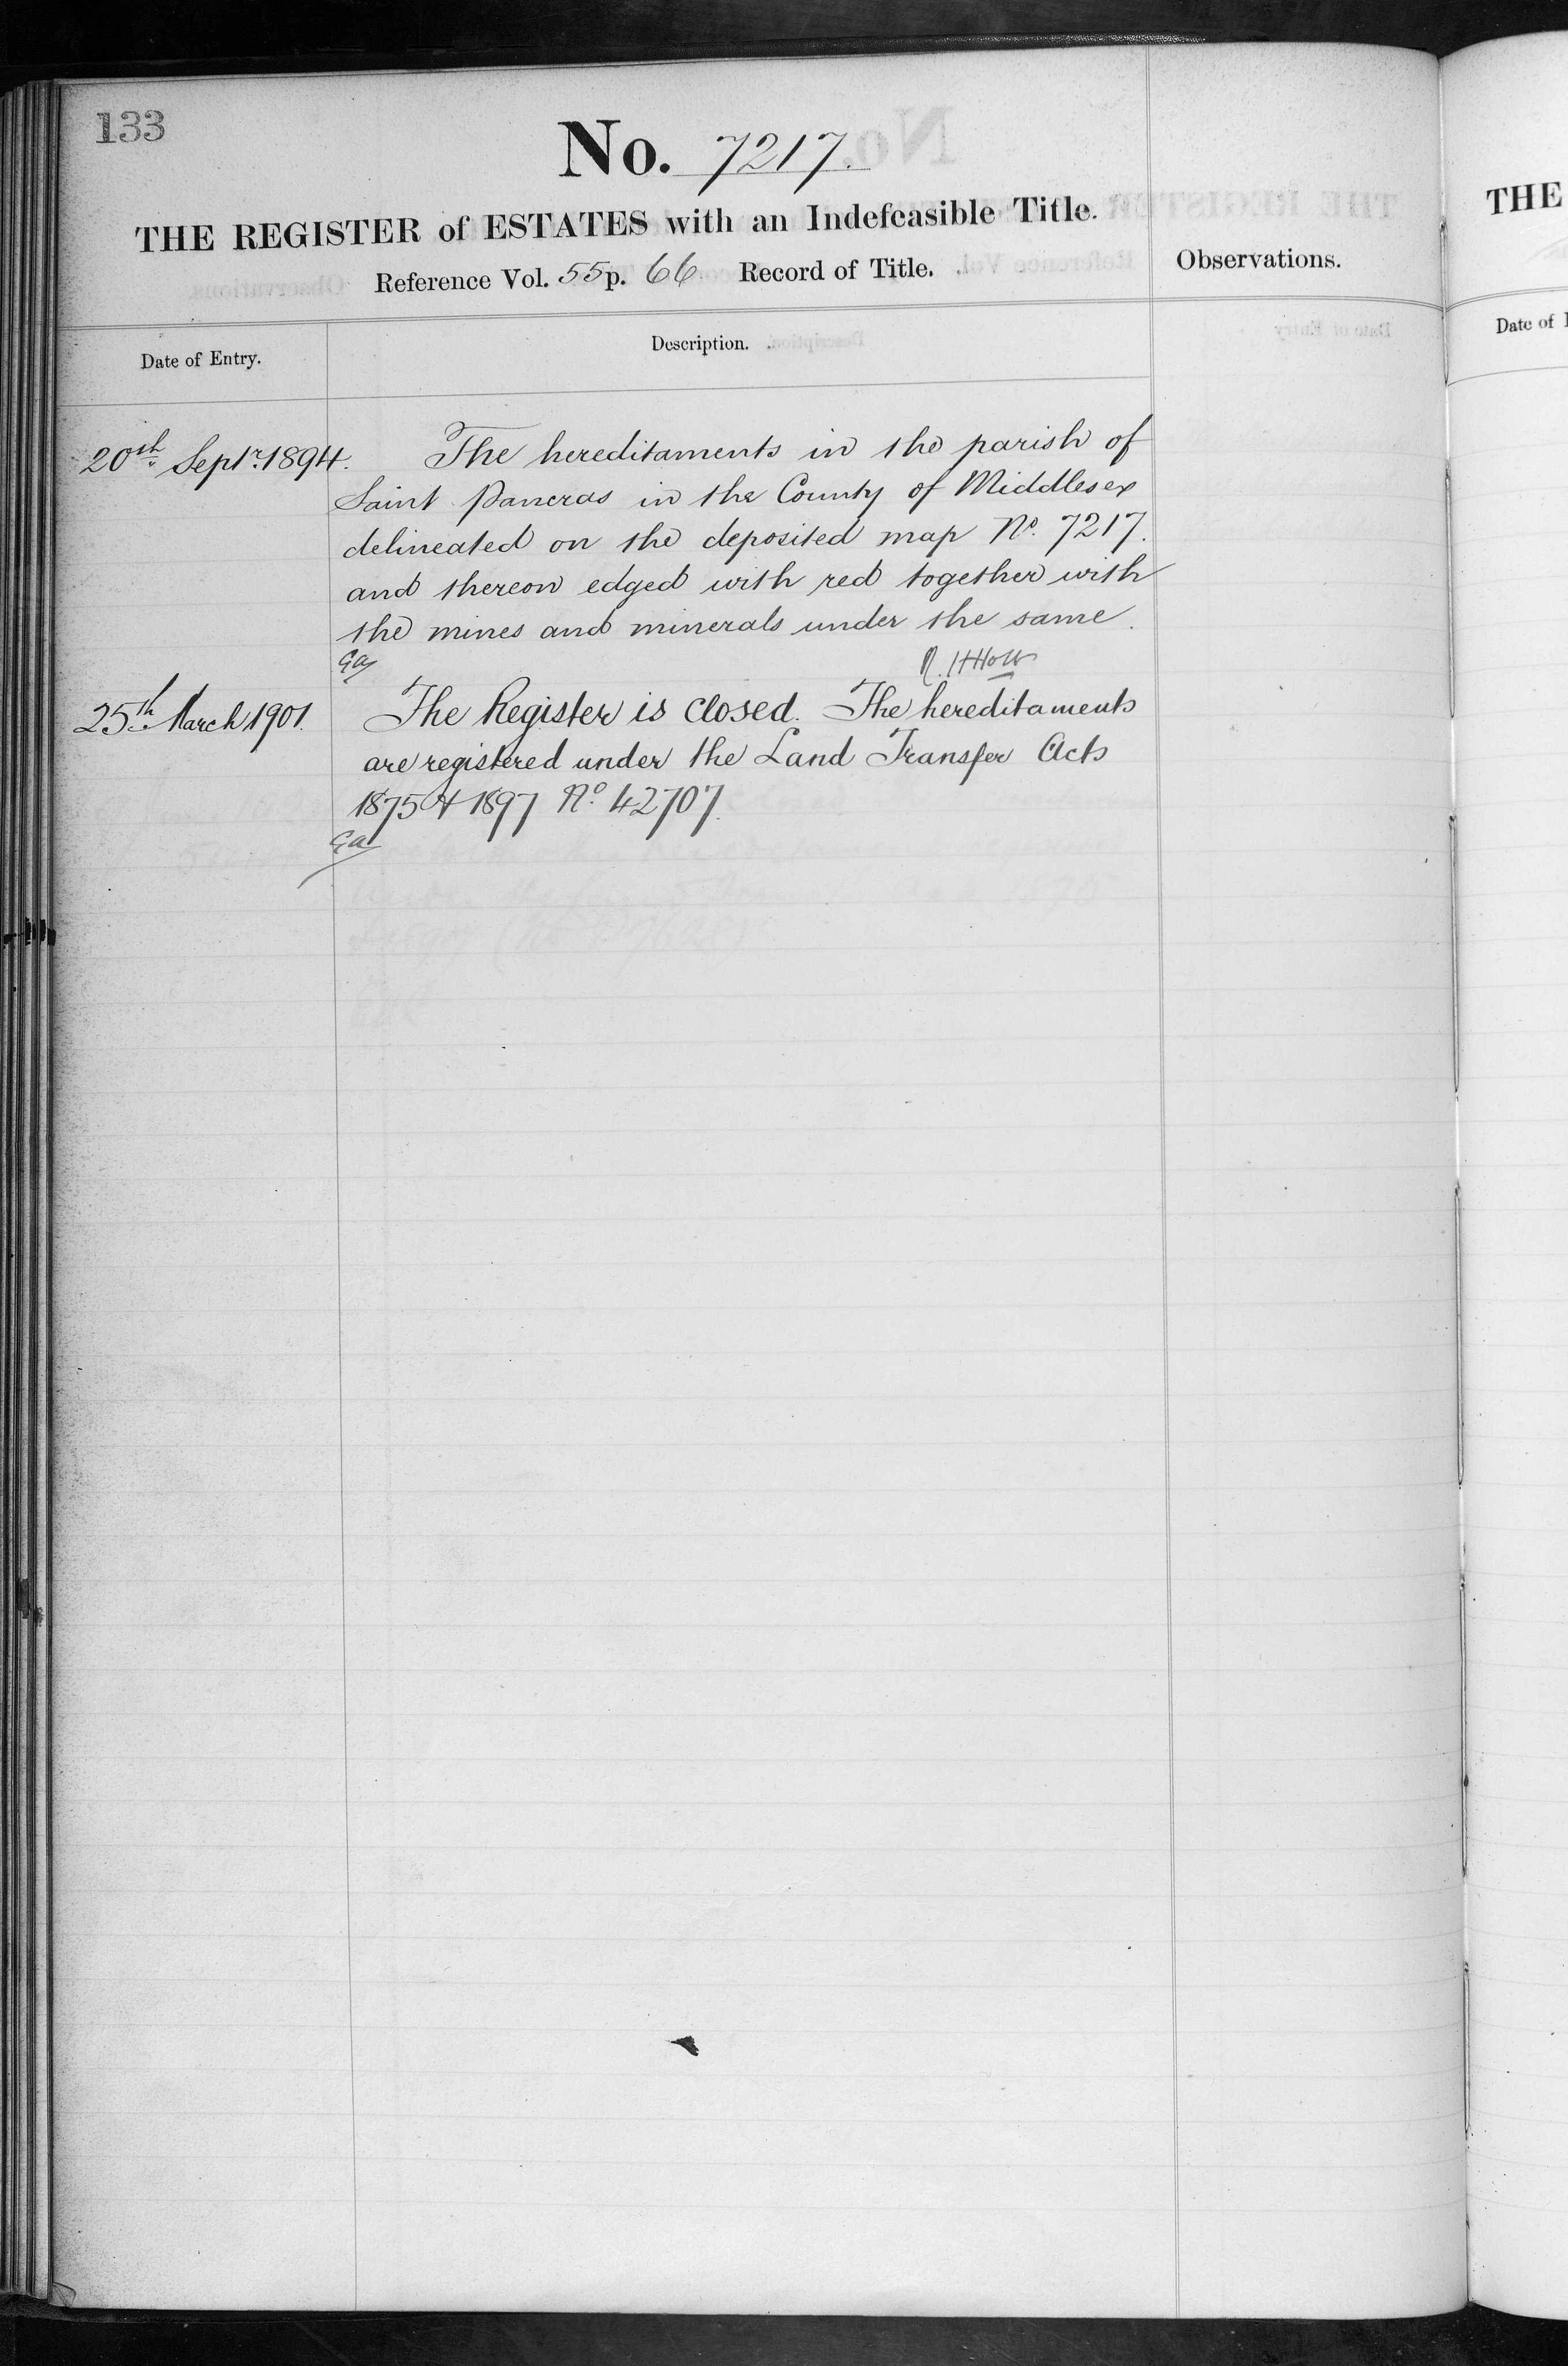 133
No. 7217.
THE REGISTER of ESTATES with an Indefeasible Title.
Reference Vol. 55 p. 66 Record of Title.
Observations.
Date of Entry.
Description.
20th Septr. 1894.
The hereditaments in the parish of
Saint Pancras in the County of Middlesex
delineated on the deposited map No. 7217.
and thereon edged with red together with
the mines and minerals under the same.
R. H Holt
25th March 1901.
The Register is closed. The hereditaments
are registered under the Land Transfer Acts
1875 & 1897 No 42707.
THE
Date of